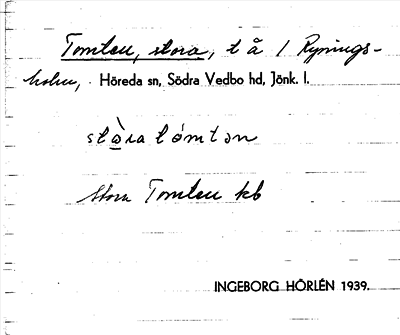 Tomten, stora, t å 1 Rynings-
holm, Höreda sn, Södra Vedbo hd, Jönk. l.
stòra tómtən
Stora Tomten kb
INGEBORG HÖRLÉN 1939.